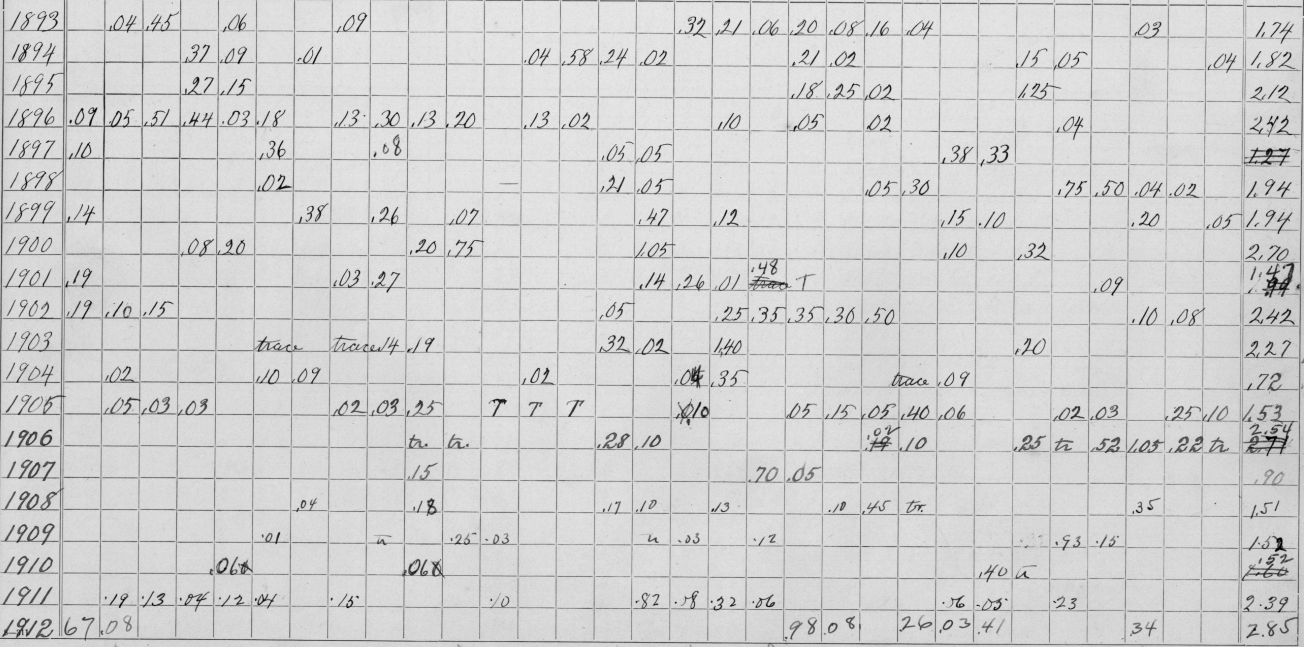 1893 .04 .45 .06 .09 .32 .21 .06 .20 .08 .16 .04 .03 1.74
1894 .37 .09 .01 .04 .58 .24 .02 .21 .02 .15 .05 .04 1.82
1895 .27 .15 .18 .25 .02 1.25 2.12
1896 .09 .05 .51 .44 .03 .18 .13 .30 .13 .20 .13 .02 .10 .05 .02 .04 2.42
1897 .10 .36 .08 .05 .05 .38 .33 1.27
1898 .02 — .21 .05 .05 .30 .75 .50 .04 .02 1.94
1899 .14 .38 .26 .07 .47 .12 .15 .10 .20 .05 1.94
1900 .08 .20 .20 .75 1.05 .10 .32 2.70
1901 .19 .03 .27 .14 .26 .01 .48 trace T .09 1.47
1902 .19 .10 .15 .05 .25 .35 .35 .30 .50 .10 .08 2.42
1903 trace trace .14 .19 .32 .02 1.40 .20 2.27
1904 .02 .10 .09 .02 .35 trace .09 .72
1905 .05 .03 .03 .02 .03 .25 T T T .10 .05 .15 .05 .40 .06 .02 .03 .25 .10 1.53
1906 tr. tr. .28 .10 .02 .19 .10 .25 tr .52 1.05 .22 tr 2.54 2.71
1907 .15 .70 .05 .90
1908 .04 .18 .17 .10 .13 .10 .45 tr. .35 1.51
1909 .01 tr .25 .03 tr .03 .12 .93 .15 1.52
1910 .06 .06 .40 tr .52
1911 .19 .13 .04 .12 .04 .15 .10 .82 .08 .32 .06 .06 .05 .23 2.39
1912 67 .08 .98 .08 26 .03 .41 34 2.85